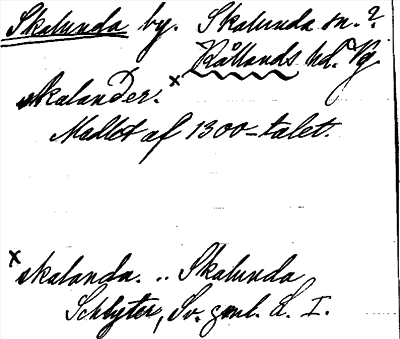 Skalunda by. Skalunda sn.?
Kållands hd. Vg
skalander. x
Mallöt af 1300-talet.
x skalanda. .. Skalunda
Schlyter, Sv. gml. L. I.